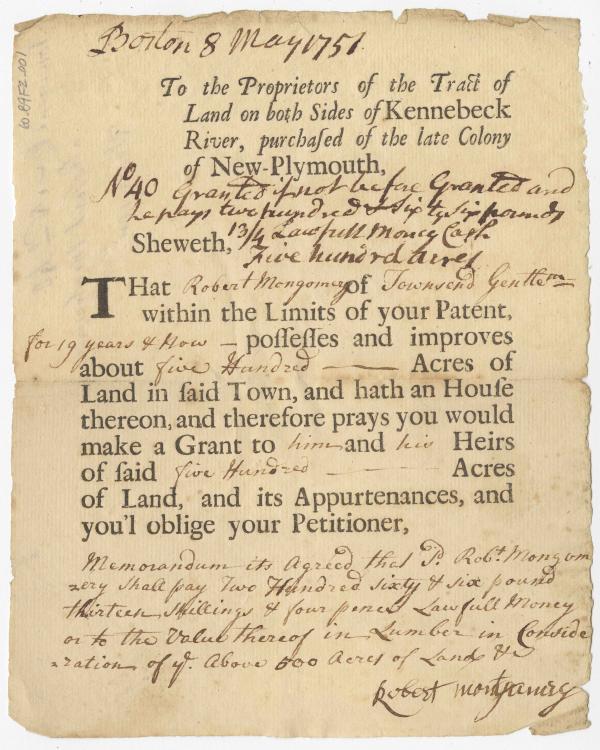 Boston 8 May 1751
60.89FZ.001
To the Proprietors of the Tract of
Land on both Sides of Kennebeck
River, purchaſed of the late Colony
of New-Plymouth,
No 40 Granted if not before Granted and
he pays two hundred & Sixty Six pounds
Sheweth, 13/4 Lawfull Money Cash
Five hundrd acres
THat Robert Mongomery of Townsend Gentlem
within the Limits of your Patent,
for 19 years & Now — poſſeſſes and improves
about five Hundred —— Acres of
Land in ſaid Town, and hath an Houſe
thereon, and therefore prays you would
make a Grant to him and his Heirs
of ſaid five Hundred —— Acres
of Land, and its Appurtenances, and
you'l oblige your Petitioner,
Memorandum its Agreed that Robt. Mongom
=ery Shall pay Two Hundred sixty & six pound
thirteen Shillings & four pence Lawfull Money
or to the Value thereof in Lumber in Conside
=ration of ye. Above 500 Acres of Land &c
Robert montgamery